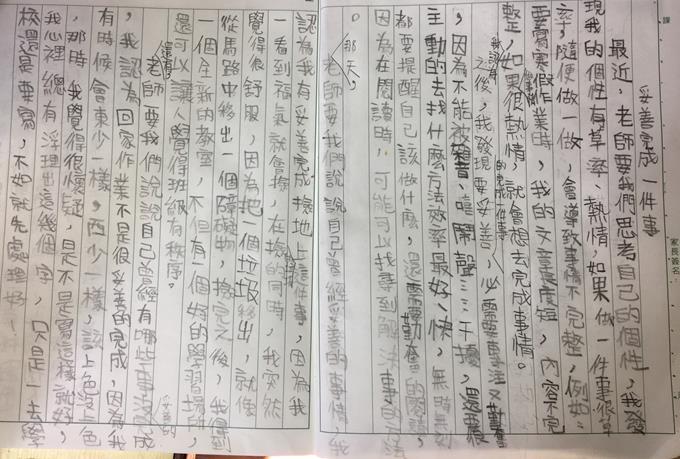 妥善完成一件事
最近,老師要我們思考自己的個性,我發
現我的個性有草率、熱情,如果做一件事很草
率,隨便做一做,會導致事情不完整,例如:
要寫寒假作業時,我的文章長度短,內容不完
整,如果很熱情,就會想去完成事情。
我認為之後,我發現要妥善的完成一件事,必需要專注又勤奮
,因為不能被聲音、嘻鬧聲……干擾,還要很
主動的去找什麼方法效率最好、快,無時無刻
都要提醒自己該做什麼,還需要勤奮的閱讀,
因為在閱讀時,可能可以找尋到解決事的方法
。那天,
老師要我們說說自己曾經妥善的事情,我
認為我有妥善完成撿地上這件事,因為我
一看到福氣就會撿,在撿的同時,我突然
覺得很舒服,因為把一個垃圾移出,就像
從馬路中移出一個障礙物,撿完之後,我得到
一個全新的教室,不但有一個好的學習場所,
還可以讓人覺得班級有秩序。
還有,老師要我們說說自己曾經有哪些事沒完成妥善的
,我認為回家作業不是很妥善的完成,因為我
有時候會東少一樣,西少一樣,該上色沒上色
,那時,我覺得很懷疑,是不是寫這樣就好,
我心裡總有浮現出這幾個字,只是一去學
校還是要寫,不如就先處理好!
課
家長簽名: